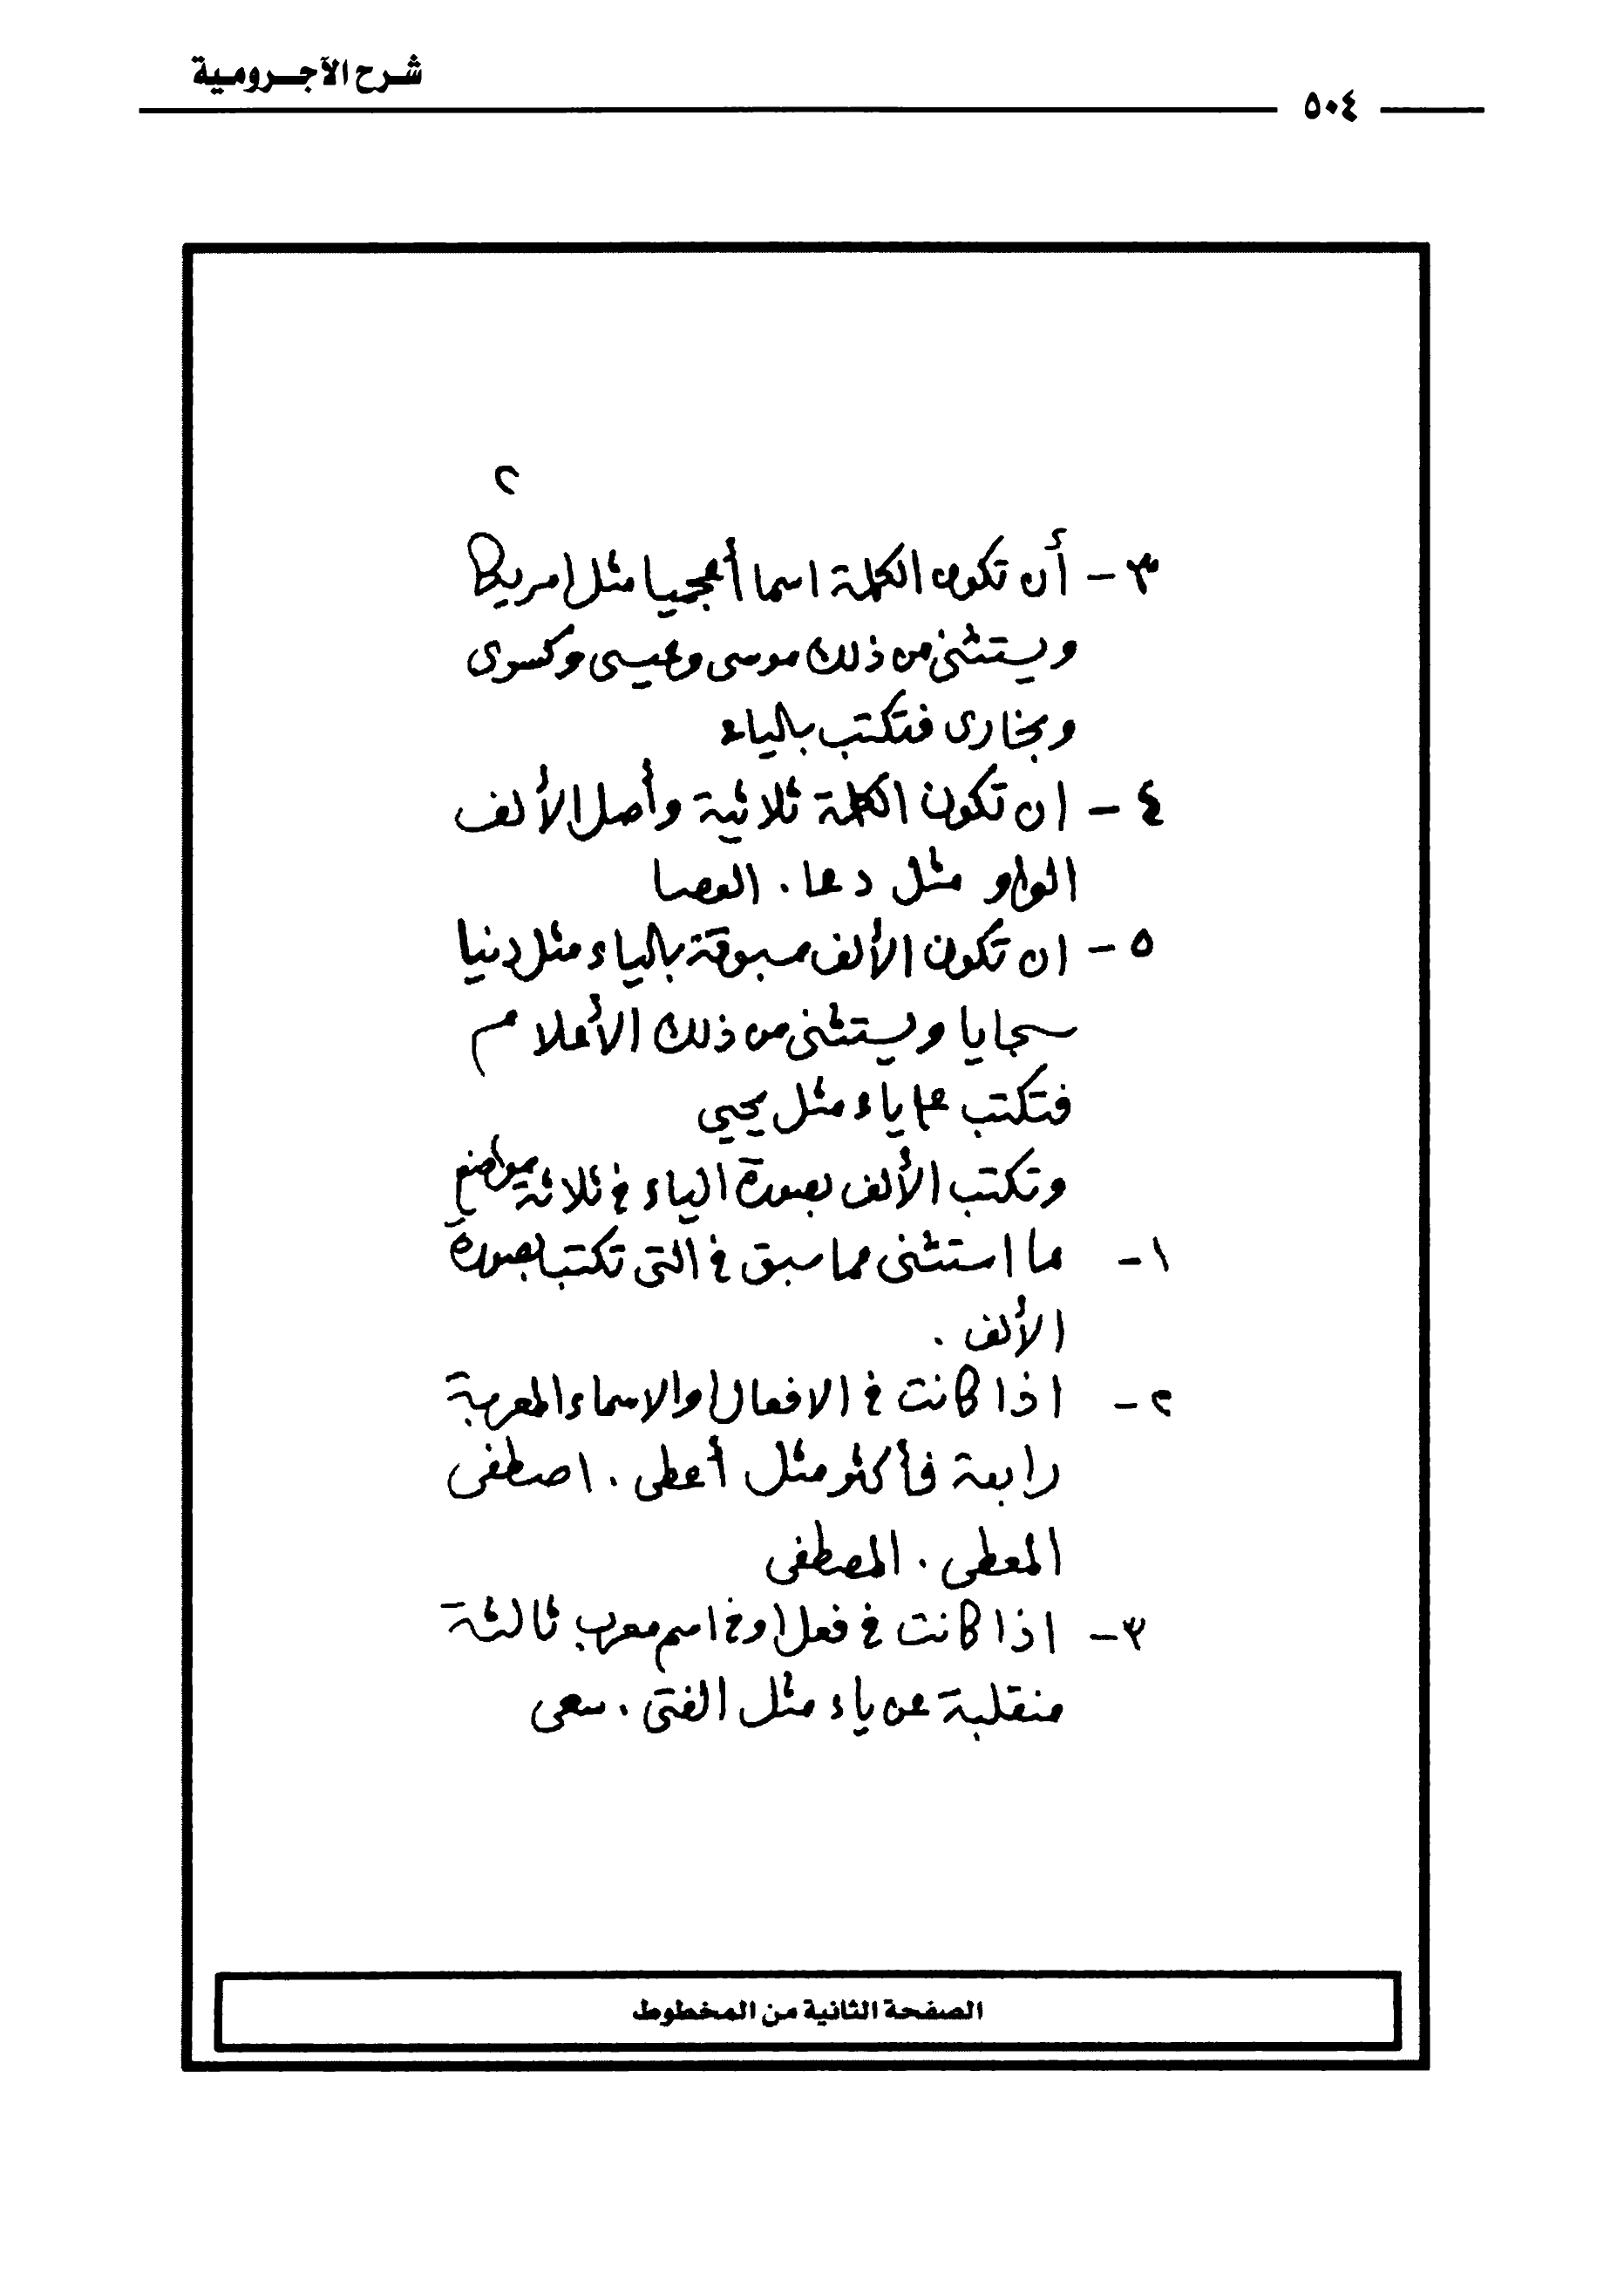 شرح الآجرومية
٥٠٤
٢
٣ - أن تكون الكلمة اسما أعجميا مثل امريكا
ويستثنى من ذلك موسى وعيسى وكسرى
وبخارى فتكتب بالياء
٤ - ان تكون الكلمة ثلاثية وأصل الألف
الواو مثل دعا . العصا
٥ - ان تكون الألف مسبوقة بالياء مثل دنيا
سجايا ويستثنى من ذلك الأعلام
فتكتب ياء مثل يحيى
وتكتب الألف بصورة الياء في ثلاثة مواضع
١ - ما استثنى مما سبق في التي تكتب بصورة
الألف .
٢ - اذا كانت في الافعال والاسماء المعربة
رابعة فأكثر مثل أعطى . اصطفى
المعطى . المصطفى
٣ - اذا كانت في فعل او في اسم معرب ثالثة
منقلبة عن ياء مثل الفتى . سعى
الصفحة الثانية من المخطوط